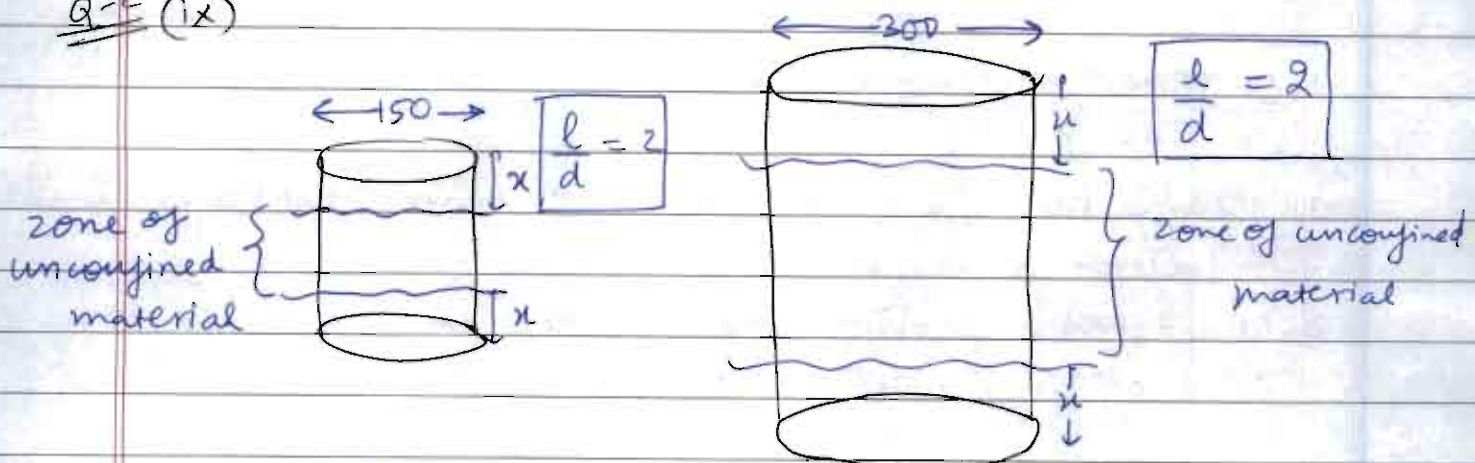 Q= (ix)
150
l/d = 2
x
x
zone of
unconfined
material
300
l/d = 2
x
x
zone of unconfined
material